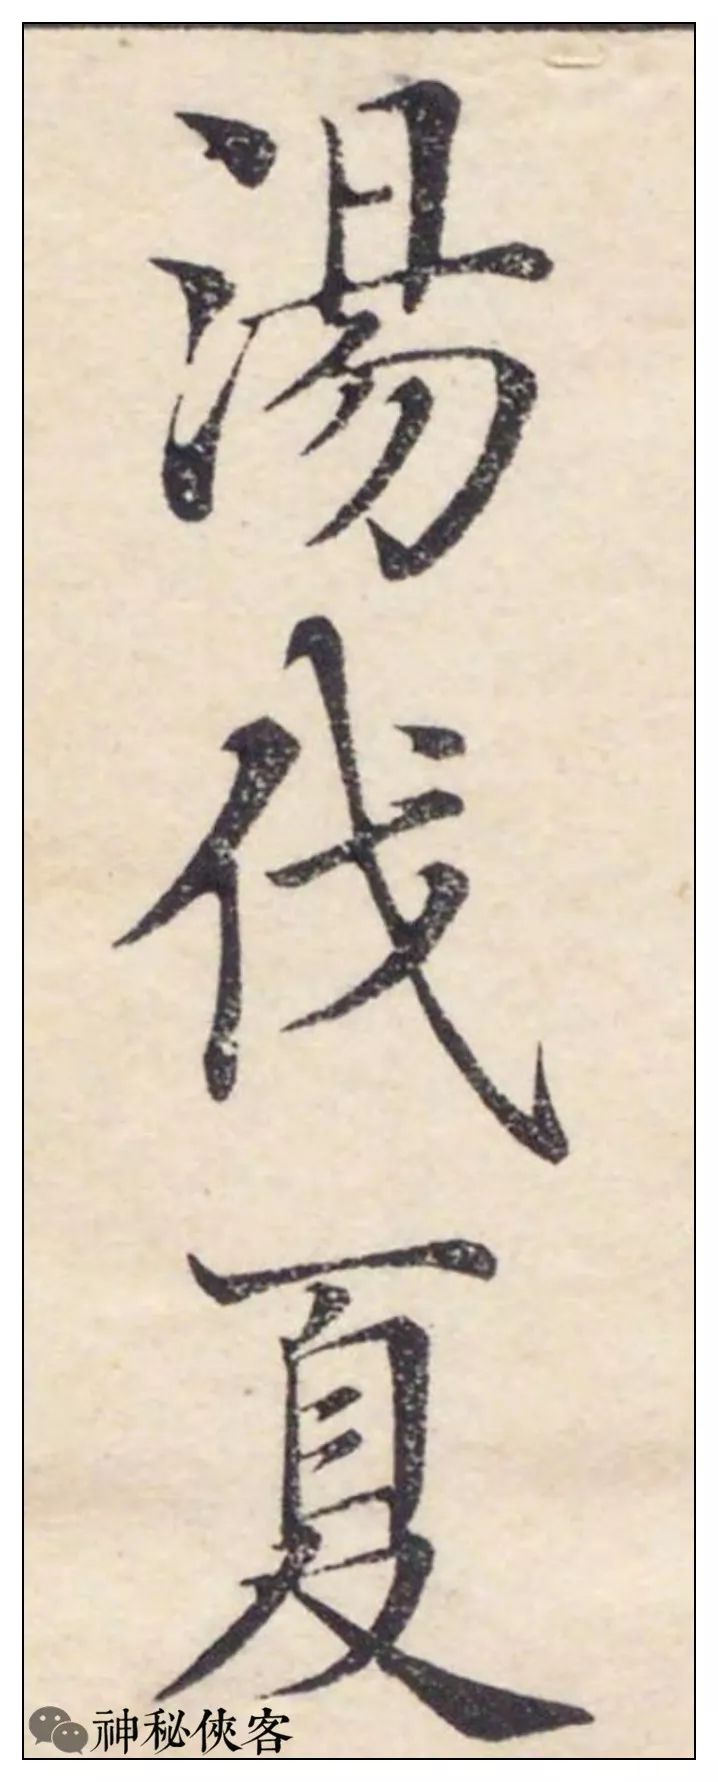 湯伐夏
神秘俠客